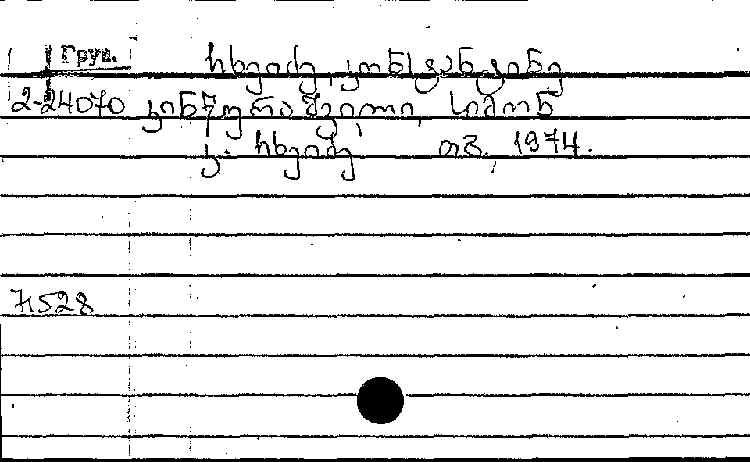 Груз.
ჩხეიძე, კონსტანტინე
2-24070 კინწურაშვილი, სიმონ
კ. ჩხეიძე თბ., 1974.
71528